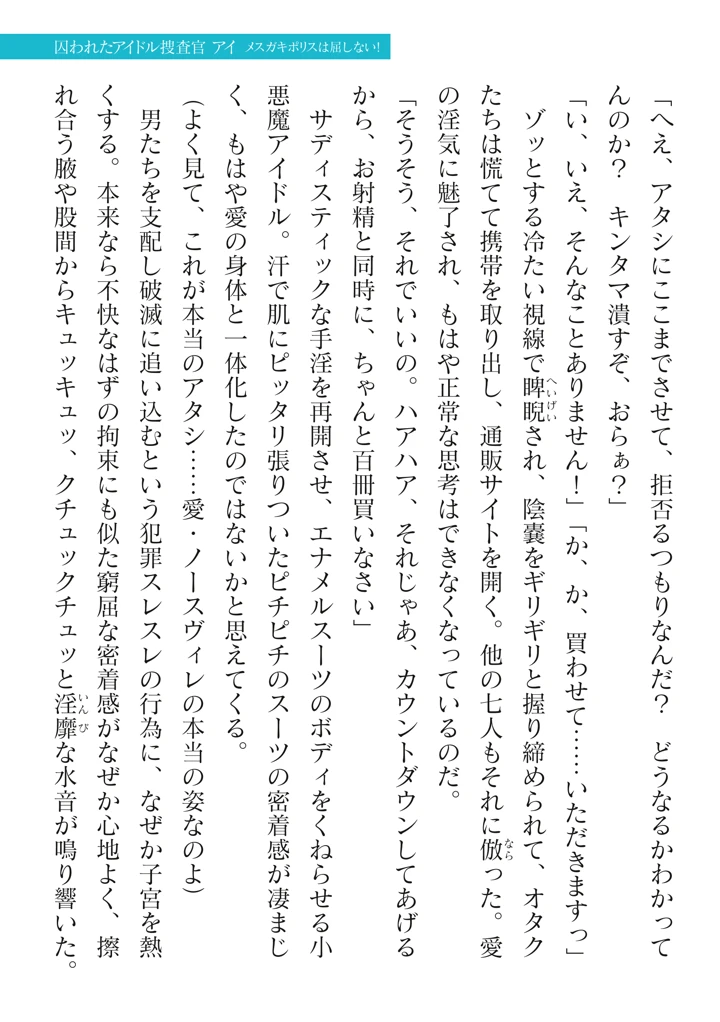 囚われたアイドル捜査官 アイ メスガキポリスは屈しない!
「へえ、アタシにここまでさせて、拒否るつもりなんだ? どうなるかわかって
んのか? キンタマ潰すぞ、おらぁ?」
「い、いえ、そんなことありません!」「か、か、買わせて……いただきますっ」
ゾッとする冷たい視線で睥睨(へいげい)され、陰嚢をギリギリと握り締められて、オタク
たちは慌てて携帯を取り出し、通販サイトを開く。他の七人もそれに倣(なら)った。愛
の淫気に魅了され、もはや正常な思考はできなくなっているのだ。
「そうそう、それでいいの。ハアハア、それじゃあ、カウントダウンしてあげる
から、お射精と同時に、ちゃんと百冊買いなさい」
サディスティックな手淫を再開させ、エナメルスーツのボディをくねらせる小
悪魔アイドル。汗で肌にピッタリ張りついたピチピチのスーツの密着感が凄まじ
く、もはや愛の身体と一体化したのではないかと思えてくる。
(よく見て、これが本当のアタシ……愛・ノースヴィレの本当の姿なのよ)
男たちを支配し破滅に追い込むという犯罪スレスレの行為に、なぜか子宮を熱
くする。本来なら不快なはずの拘束にも似た窮屈な密着感がなぜか心地よく、擦
れ合う腋や股間からキュッキュッ、クチュックチュッと淫靡(いんび)な水音が鳴り響いた。